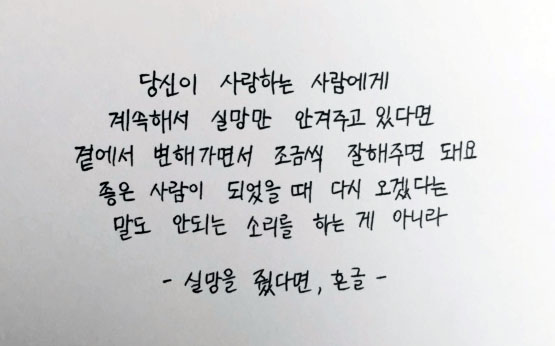 당신이 사랑하는 사람에게
계속해서 실망만 안겨주고 있다면
곁에서 변해가면서 조금씩 잘해주면 돼요
좋은 사람이 되었을 때 다시 오겠다는
말도 안되는 소리를 하는 게 아니라
- 실망을 줬다면, 흔글 -